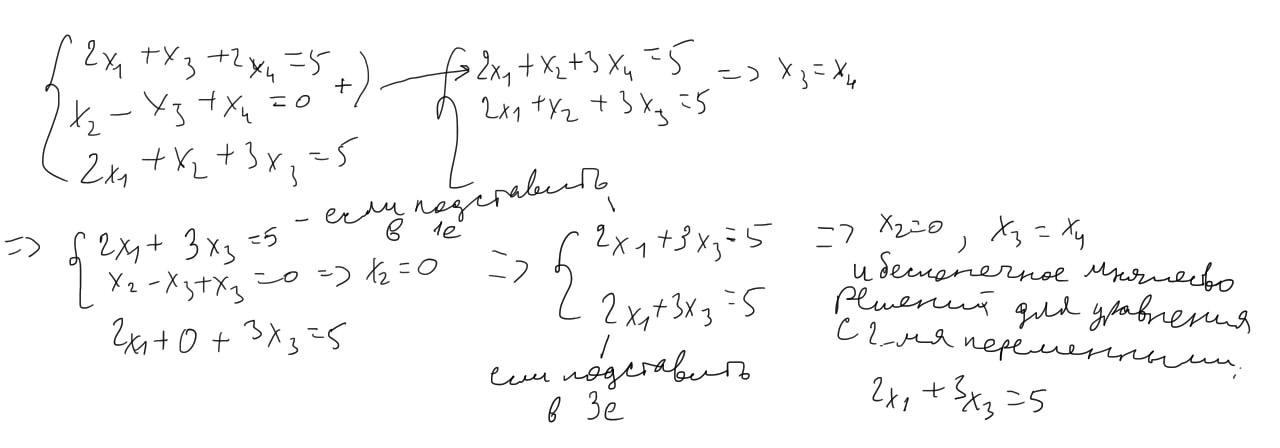 2x₁ + x₃ + 2x₄ = 5
x₂ - x₃ + x₄ = 0 +)
2x₁ + x₂ + 3x₃ = 5
2x₁ + x₂ + 3x₄ = 5 => x₃ = x₄
2x₁ + x₂ + 3x₃ = 5
=> 2x₁ + 3x₃ = 5 - если подставить
в 1е
x₂ - x₃ + x₃ = 0 => x₂ = 0
2x₁ + 0 + 3x₃ = 5
=> 2x₁ + 3x₃ = 5
2x₁ + 3x₃ = 5
если подставить
в 3е
=> x₂ = 0, x₃ = x₄
и бесконечное множество
решений для уравнения
с 2-мя переменными:
2x₁ + 3x₃ = 5